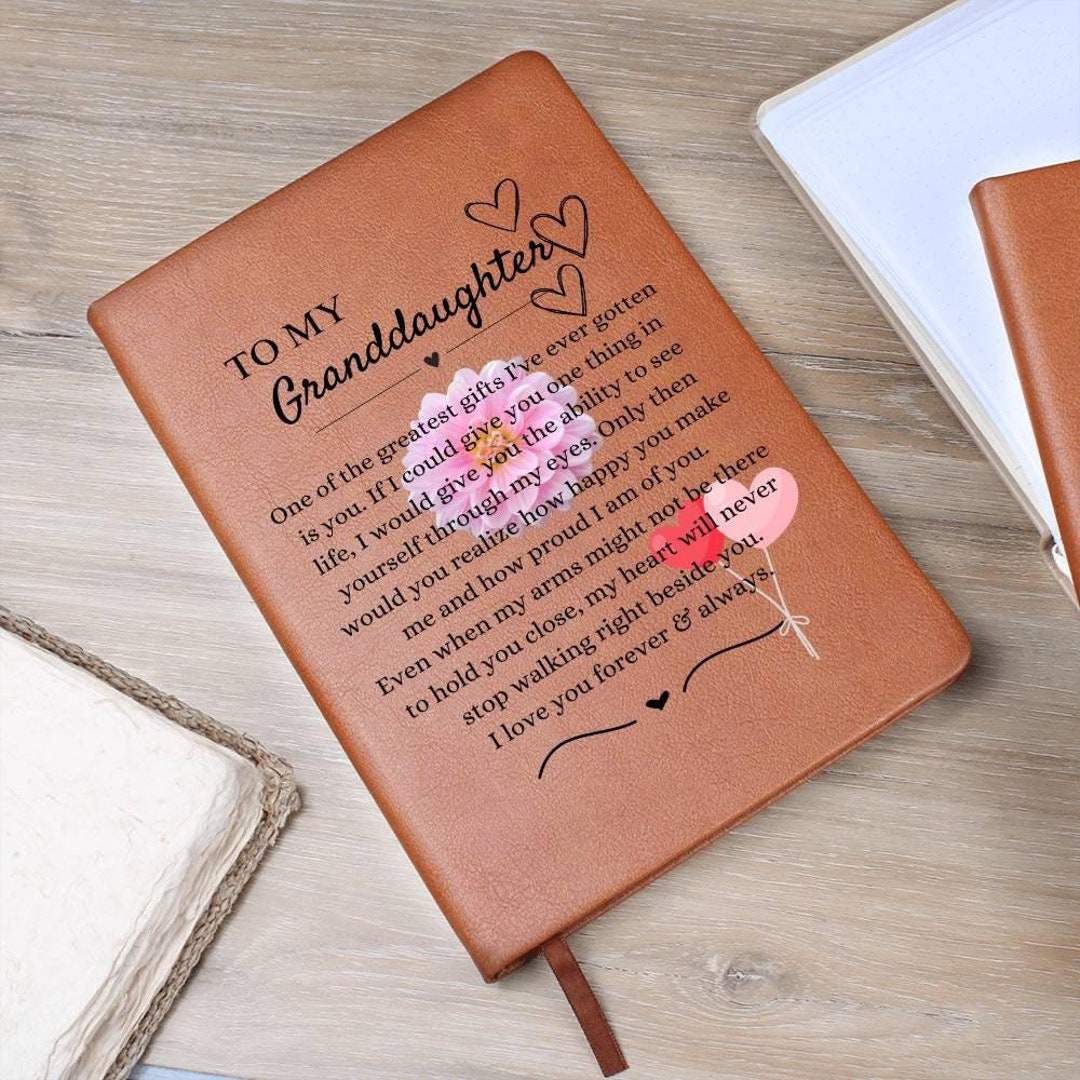 TO MY
Granddaughter
One of the greatest gifts I've ever gotten
is you. If I could give you one thing in
life, I would give you the ability to see
yourself through my eyes. Only then
would you realize how happy you make
me and how proud I am of you.
Even when my arms might not be there
to hold you close, my heart will never
stop walking right beside you.
I love you forever & always.